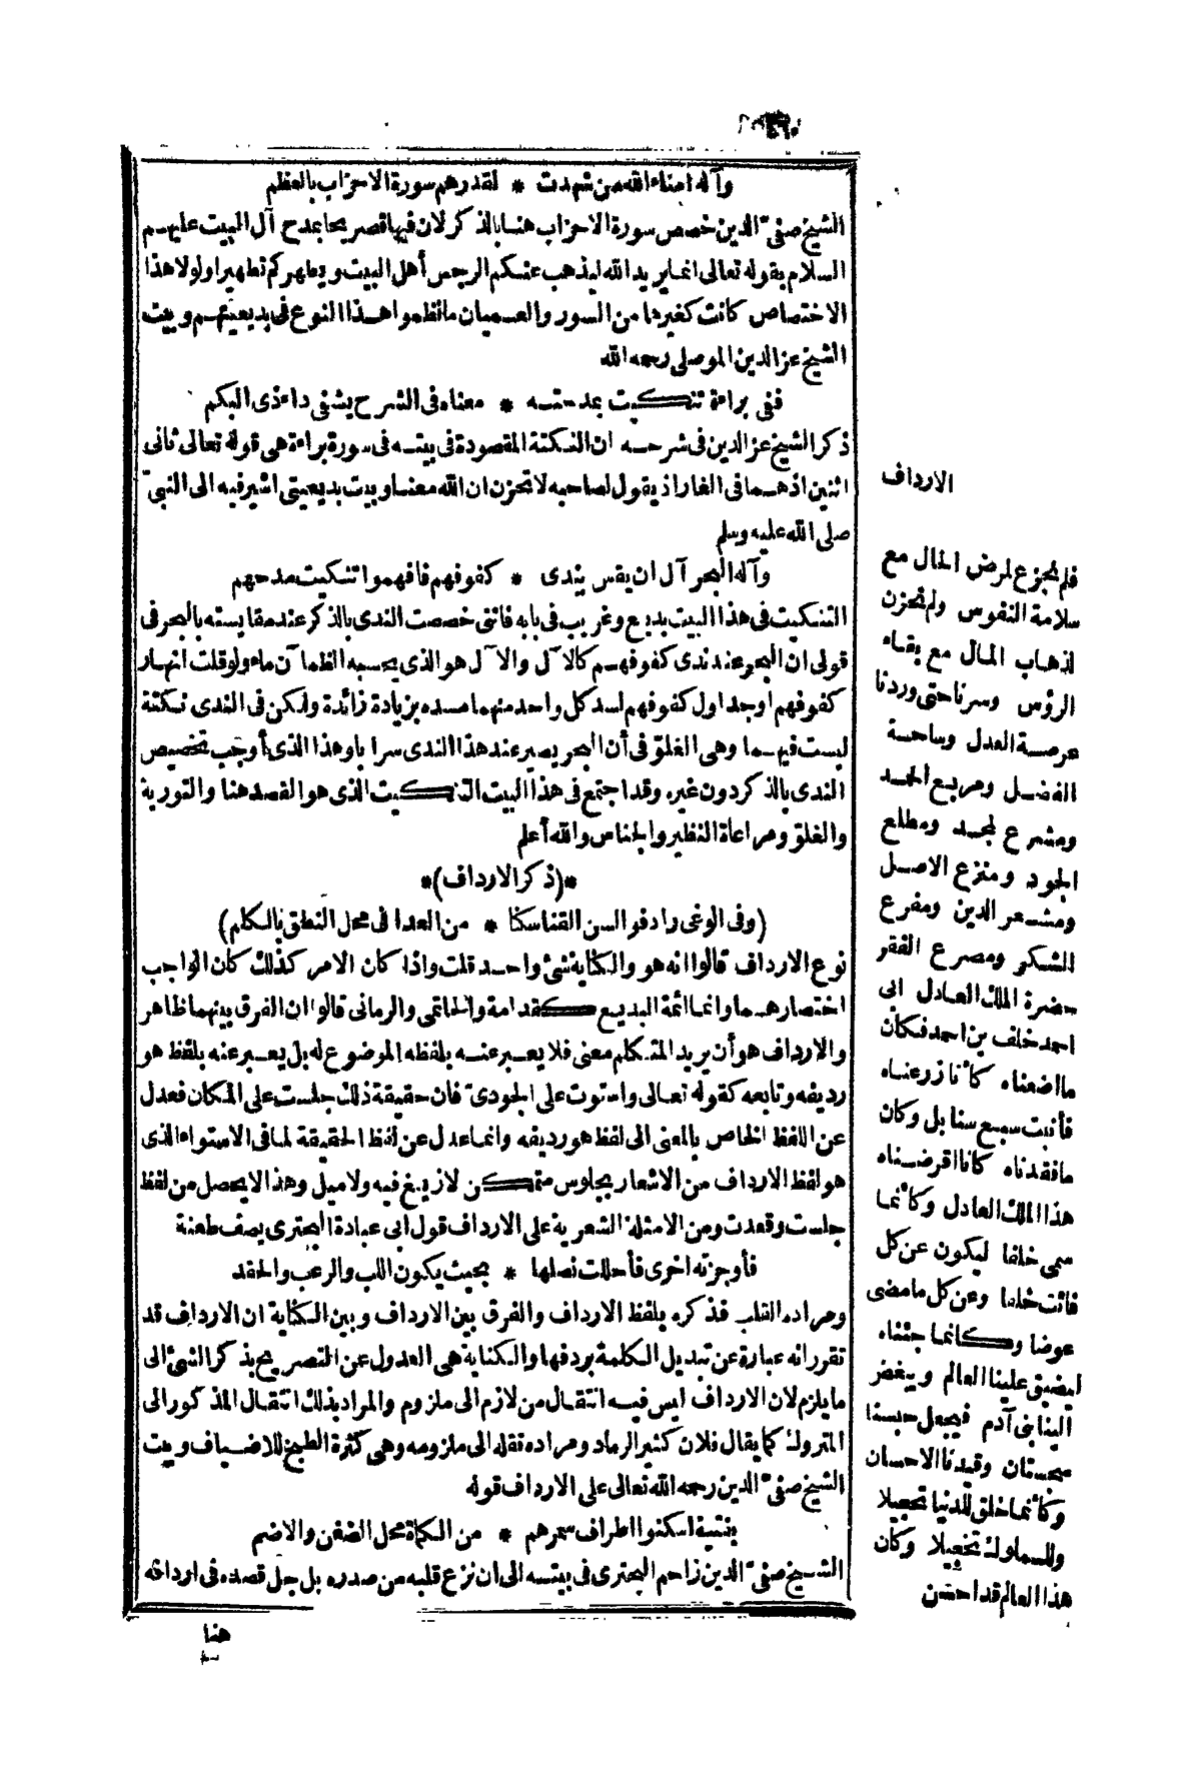 ٤٦٠
وآله امناء الله من شهدت * لقدرهم سورة الاحزاب بالعظم
الشيخ صفي الدين خصص سورة الاحزاب هنا بالذكر لان فيها تصريحا بمدح آل البيت عليهم
السلام بقوله تعالى انما يريد الله ليذهب عنكم الرجس أهل البيت ويطهركم تطهيرا ولولا هذا
الاختصاص كانت كغيرها من السور والعميان ما نظموا هذا النوع في بديعيتهم وبيت
الشيخ عز الدين الموصلي رحمه الله
ففي براءة تنكيت بمدحته * معناه في الشرح يشفي داء ذي البكم
ذكر الشيخ عز الدين في شرحه ان النكتة المقصودة في بيته في سورة براءة هي قوله تعالى ثاني
اثنين اذ هما في الغار اذ يقول لصاحبه لا تحزن ان الله معنا وبيت بديعيتي اشير فيه الى النبي
صلى الله عليه وسلم
وآله البحر آل ان يقس بندى * كفوفهم فافهموا تنكيت مدحهم
التنكيت في هذا البيت بديع وغريب في بابه فانني خصصت الندى بالذكر عند مقايسته بالبحر في
قولي ان البحر عند ندى كفوفهم كالآل والآل هو الذي يحسبه الظمآن ماء ولو قلت انهار
كفوفهم او جداول كفوفهم لسد كل واحد منهما مسده بزيادة زائدة ولكن في الندى نكتة
ليست فيهما وهي الغلو في أن البحر يصير عند هذا الندى سرابا وهذا الذي أوجب تخصيص
الندى بالذكر دون غيره وقد اجتمع في هذا البيت التنكيت الذي هو القصد هنا والتورية
والغلو ومراعاة النظير والجناس والله أعلم
*(ذكر الارداف)*
(وفي الوغى رادفوا لسن القنا سكنا * من العدا في محل النطق بالكلم)
نوع الارداف قالوا انه هو والكناية شئ واحد قلت واذا كان الامر كذلك كان الواجب
اختصارهما وانما ائمة البديع كقدامة والحاتمي والرماني قالوا ان الفرق بينهما ظاهر
والارداف هو أن يريد المتكلم معنى فلا يعبر عنه بلفظه الموضوع له بل يعبر عنه بلفظ هو
رديفه وتابعه كقوله تعالى واستوت على الجودي فان حقيقة ذلك جلست على المكان فعدل
عن اللفظ الخاص بالمعنى الى لفظ هو رديفه وانما عدل عن لفظ الحقيقة لما في الاستواء الذي
هو لفظ الارداف من الاشعار بجلوس متمكن لا زيغ فيه ولا ميل وهذا لا يحصل من لفظ
جلست وقعدت ومن الامثلة الشعرية على الارداف قول ابي عبادة البحتري يصف طعنة
فأوجزته اخرى فأحللت نصلها * بحيث يكون اللب والرعب والحقد
ومراده القلب فذكره بلفظ الارداف والفرق بين الارداف وبين الكناية ان الارداف قد
تقرر انه عبارة عن تبديل الكلمة بردفها والكناية هي العدول عن التصريح بذكر الشئ الى
ما يلزم لان الارداف ليس فيه انتقال من لازم الى ملزوم والمراد بذلك انتقال المذكور الى
المتروك كما يقال فلان كثير الرماد ومراده نقله الى ملزومه وهي كثرة الطبخ للاضياف وبيت
الشيخ صفي الدين رحمه الله تعالى على الارداف قوله
بفتية اسكنوا اطراف سمرهم * من الكماة محل الضغن والاضم
الشيخ صفي الدين زاحم البحتري في بيته الى ان نزع قلبه من صدره بل جل قصده في اردافه
هنا
الارداف
فلم نجزع لمرض الحال مع
سلامة النفوس ولم نحزن
لذهاب المال مع بقاء
الرؤس وسرنا حتى وردنا
عرصة العدل وساحة
الفضل ومربع الحمد
ومشرع المجد ومطلع
الجود ومنزع الاصل
ومشعر الدين ومفرع
الشكر ومصرع الفقر
حضرة الملك العادل ابي
احمد خلف بن احمد فكان
ما اضعناه كأنا زرعناه
فأنبت سبع سنابل وكان
ما فقدناه كأنا اقرضناه
هذا الملك العادل وكأنما
سمي خلفا ليكون عن كل
فائت خلفا وعن كل ما مضى
عوضا وكأنما جئناه
ليضيق علينا العالم ويبغض
الينا بني آدم فيجعل حبسنا
سجستان وقيدنا الاحسان
وكأنما خلق للدنيا تحجيلا
وللملوك تخجيلا وكأن
هذا العالم قد احسن